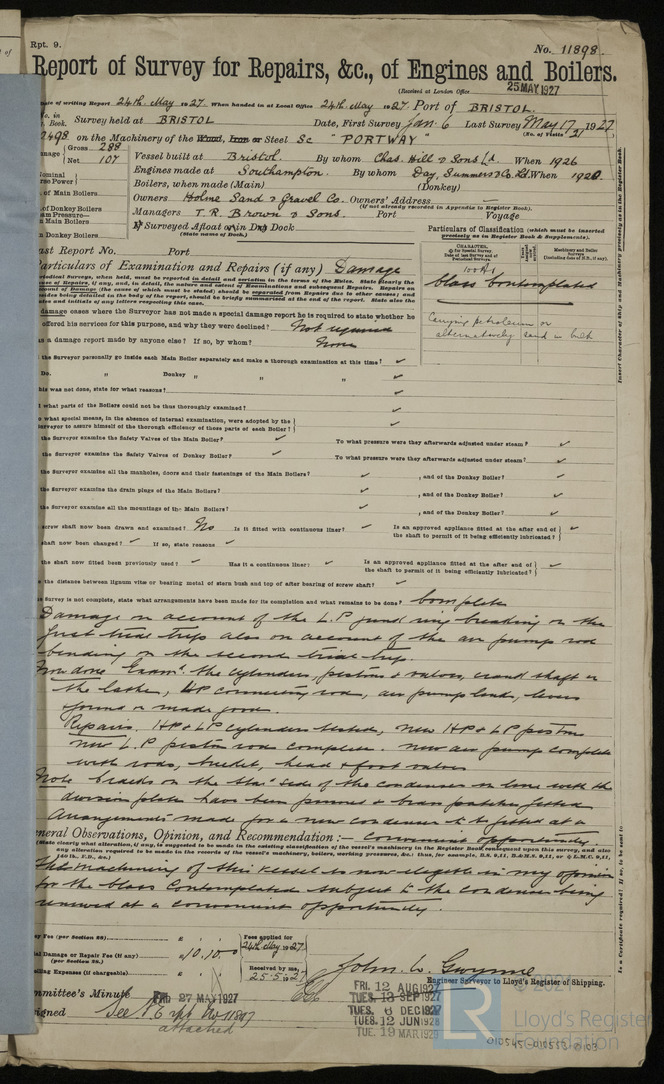 Rpt. 9.
No. 11898.
Report of Survey for Repairs, &c., of Engines and Boilers.
(Received at London Office 25 MAY 1927
Date of writing Report 24th May 1927 When handed in at Local Office 24th May 1927 Port of BRISTOL.
No. in Book. Survey held at BRISTOL Date, First Survey Jan. 6 Last Survey May 17 1927
(No. of Visits 21)
2498 on the Machinery of the Wood, Iron or Steel Sc "PORTWAY"
Gross 288
Net 107
Vessel built at Bristol. By whom Chas. Hill & Sons Ld. When 1926
Engines made at Southampton. By whom Day, Summers & Co. Ld. When 1920
Boilers, when made (Main) (Donkey)
Owners Holms Sand & Gravel Co. Owners' Address
(if not already recorded in Appendix to Register Book).
Managers T. R. Brown & Sons. Port Voyage
If Surveyed Afloat or in Dry Dock
(State name of Dock.)
of Main Boilers
of Donkey Boilers
Main Boilers
Donkey Boilers
Particulars of Classification (which must be inserted
precisely as in Register Book & Supplements).
100A1
Class Contemplated
Carrying petroleum or
alternatively sand in bulk
Last Report No. Port
Particulars of Examination and Repairs (if any) Damage
damage cases where the Surveyor has not made a special damage report he is required to state whether he
offered his services for this purpose, and why they were declined? Not required
Was a damage report made by anyone else? If so, by whom? None
the Surveyor personally go inside each Main Boiler separately and make a thorough examination at this time? ✓
Do. " Donkey " " " ✓
this was not done, state for what reasons? ✓
what parts of the Boilers could not be thoroughly examined? ✓
what special means, in the absence of internal examination, were adopted by the
Surveyor to assure himself of the thorough efficiency of those parts of each Boiler? ✓
the Surveyor examine the Safety Valves of the Main Boiler? ✓ To what pressure were they afterwards adjusted under steam? ✓
the Surveyor examine the Safety Valves of Donkey Boiler? ✓ To what pressure were they afterwards adjusted under steam? ✓
the Surveyor examine all the manholes, doors and their fastenings of the Main Boilers? ✓ , and of the Donkey Boiler? ✓
the Surveyor examine the drain plugs of the Main Boilers? ✓ , and of the Donkey Boiler? ✓
the Surveyor examine all the mountings of the Main Boilers? ✓ , and of the Donkey Boiler? ✓
screw shaft now been drawn and examined? No Is it fitted with continuous liner? ✓ Is an approved appliance fitted at the after end of
the shaft to permit of it being efficiently lubricated? ✓
shaft now been changed? ✓ If so, state reasons ✓
the shaft now fitted been previously used? ✓ Has it a continuous liner? ✓ Is an approved appliance fitted at the after end of
the shaft to permit of it being efficiently lubricated? ✓
the distance between lignum vitæ or bearing metal of stern bush and top of after bearing of screw shaft? ✓
Survey is not complete, state what arrangements have been made for its completion and what remains to be done? Complete
Damage on account of the L.P. junk ring breaking on the
first trial trip also on account of the air pump rod
bending on the second trial trip.
Now done Examd. the cylinders, pistons & valves, crank shaft in
the lathe, HP connecting rod, air pump levers
found or made good.
Repairs. HP & LP cylinders tested, new HP & LP piston
new L.P piston rod complete. New air pump complete
with rods, bucket, head & foot valves
Note Cracks on the Sta'd side of the condenser in line with the
division plate have been pinned & brass patches fitted
Arrangements made for a new condenser to be fitted at a
convenient opportunity.
General Observations, Opinion, and Recommendation:—
The Machinery of this vessel is now eligible in my opinion
for the Class Contemplated subject to the condenser being
renewed at a convenient opportunity.
Survey Fee (per Section 28)
Special Damage or Repair Fee (if any) £10.10.0
(per Section 28.)
Travelling Expenses (if chargeable)
Fees applied for
24th May 1927
Received by me,
25.5.27
John W. Gwynne
Engineer Surveyor to Lloyd's Register of Shipping.
Committee's Minute FRI 27 MAY 1927
Assigned See F.E. rpt No 11897
attached
FRI. 12 AUG 1927
TUES. 13 SEP 1927
TUES. 6 DEC 1927
TUES. 12 JUN 1928
TUE. 19 MAR 1929
LR
© 2021
Lloyd's Register
Foundation
010545-010553-0103
Insert Character of Ship and Machinery precisely as in the Register Book.
Is a Certificate required? If so, to be sent to